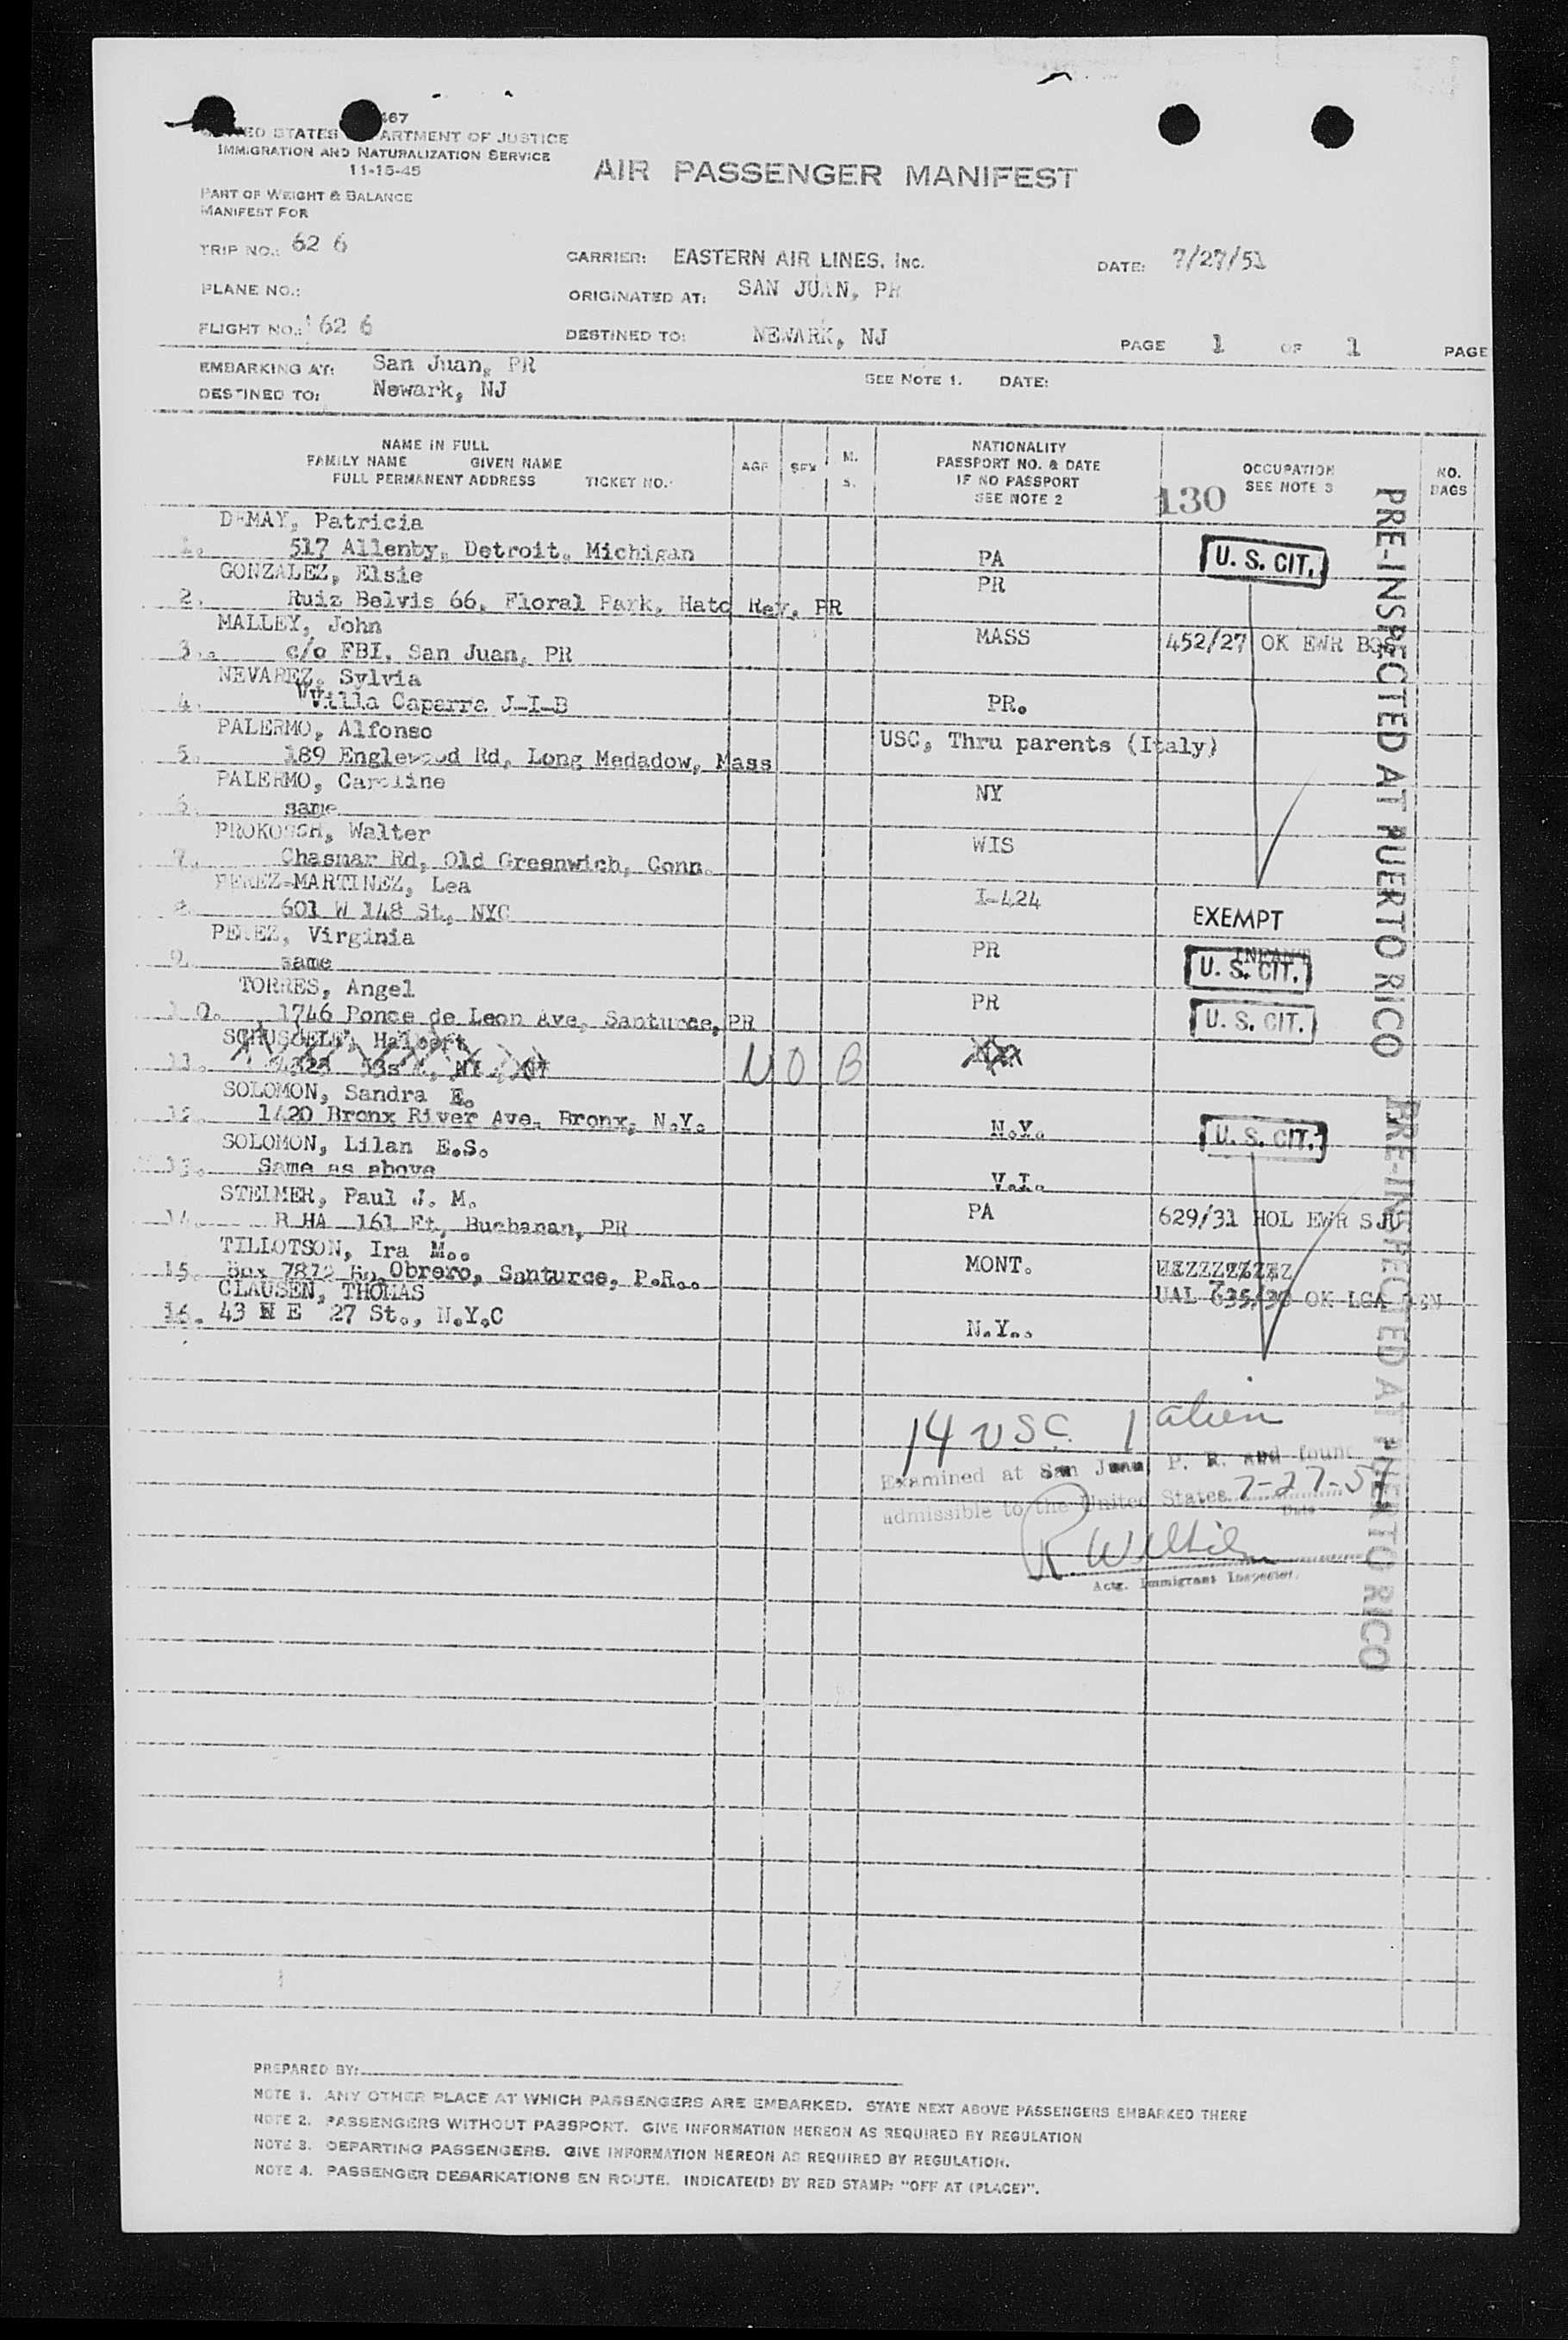 467
UNITED STATES DEPARTMENT OF JUSTICE
IMMIGRATION AND NATURALIZATION SERVICE
11-15-45
AIR PASSENGER MANIFEST
PART OF WEIGHT & BALANCE
MANIFEST FOR
TRIP NO.: 62 6
CARRIER: EASTERN AIR LINES, INC.
DATE: 7/27/51
PLANE NO.:
ORIGINATED AT: SAN JUAN, PR
FLIGHT NO.: 62 6
DESTINED TO: NEWARK, NJ
PAGE 1 OF 1 PAGE
EMBARKING AT: San Juan, PR
SEE NOTE 1. DATE:
DESTINED TO: Newark, NJ
NAME IN FULL
FAMILY NAME GIVEN NAME
FULL PERMANENT ADDRESS TICKET NO.
AGE SEX M. S.
NATIONALITY
PASSPORT NO. & DATE
IF NO PASSPORT
SEE NOTE 2
OCCUPATION
SEE NOTE 3
NO. BAGS
130
DEMAY, Patricia
1. 517 Allenby, Detroit, Michigan PA U. S. CIT.
GONZALEZ, Elsie PR
2. Ruiz Belvis 66, Floral Park, Hato Rey, PR
MALLEY, John MASS 452/27 OK EWR
3. c/o FBI, San Juan, PR
NEVAREZ, Sylvia
4. Villa Caparra J-I-B PR.
PALERMO, Alfonso USC, Thru parents (Italy)
5. 189 Englewood Rd, Long Medadow, Mass
PALERMO, Caroline NY
6. same
PROKOSCH, Walter WIS
7. Chasmar Rd, Old Greenwich, Conn.
PEREZ-MARTINEZ, Lea I-424
8. 601 W 148 St, NYC EXEMPT
PEREZ, Virginia PR INFANT
9. same U. S. CIT.
TORRES, Angel PR
10. 1746 Ponce de Leon Ave, Santurce, PR U. S. CIT.
11. N O B
SOLOMON, Sandra E.
12. 1420 Bronx River Ave. Bronx, N.Y. N.Y. U. S. CIT.
SOLOMON, Lilan E.S.
13. Same as above V.I.
STELMER, Paul J. M. PA 629/31 HOL EWR SJU
14. B HA 161 Ft, Buchanan, PR
TILLOTSON, Ira M.. MONT.
15. Box 7872 Bo. Obrero, Santurce, P.R.. UAL 635/30 OK LGA
CLAUSEN, THOMAS
16. 43 W E 27 St., N.Y.C N.Y..
PRE-INSPECTED AT PUERTO RICO
PRE-INSPECTED AT PUERTO RICO
14 USC 1 alien
Examined at San Juan, P. R. and found
admissible to the United States 7-27-51
Date
Actg. Immigrant Inspector.
PREPARED BY:
NOTE 1. ANY OTHER PLACE AT WHICH PASSENGERS ARE EMBARKED. STATE NEXT ABOVE PASSENGERS EMBARKED THERE
NOTE 2. PASSENGERS WITHOUT PASSPORT. GIVE INFORMATION HEREON AS REQUIRED BY REGULATION
NOTE 3. DEPARTING PASSENGERS. GIVE INFORMATION HEREON AS REQUIRED BY REGULATION.
NOTE 4. PASSENGER DEBARKATIONS EN ROUTE. INDICATE(D) BY RED STAMP: "OFF AT (PLACE)".